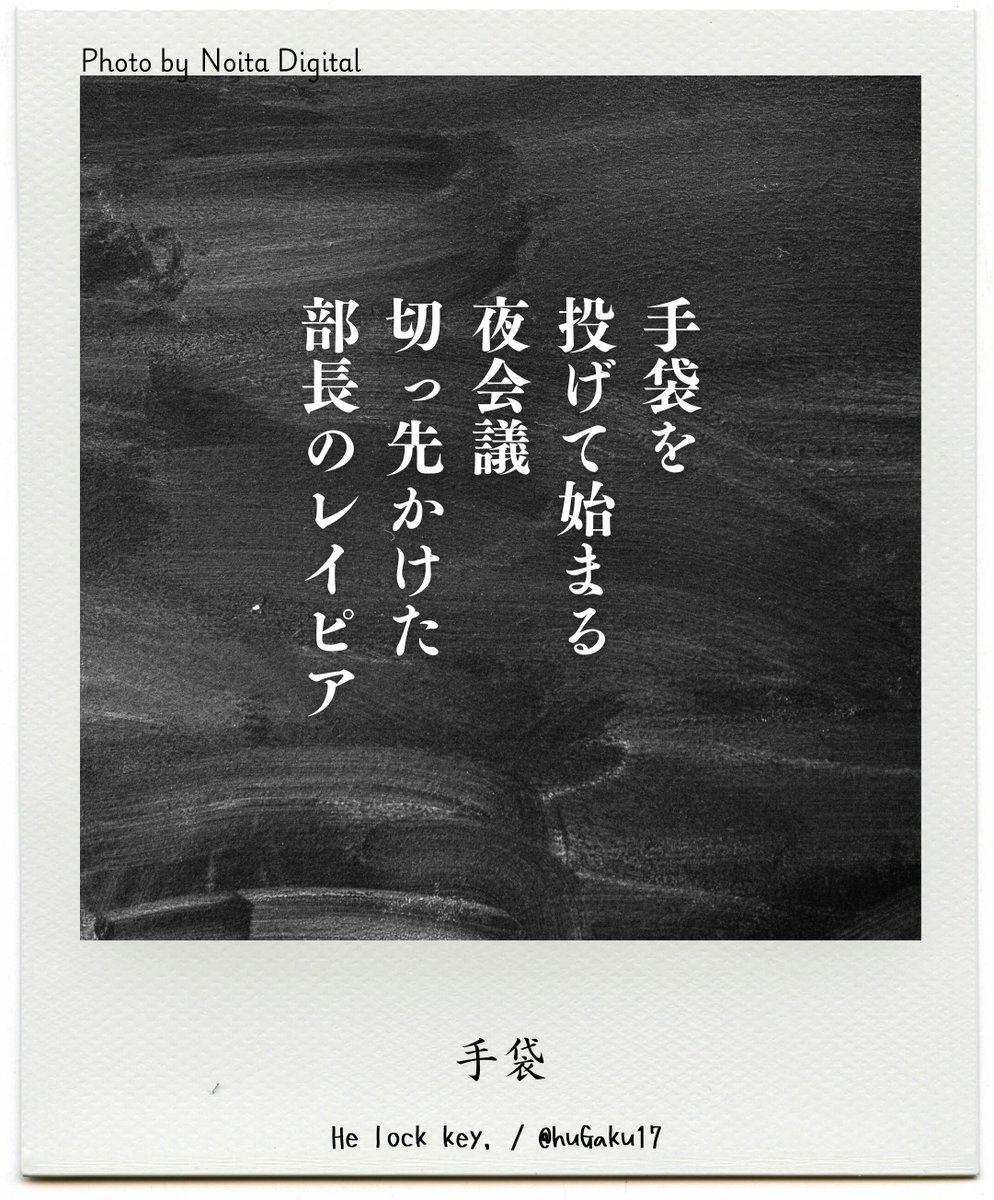 Photo by Noita Digital
手袋を
投げて始まる
夜会議
切っ先かけた
部長のレイピア
手袋
He lock key. / @huGaku17